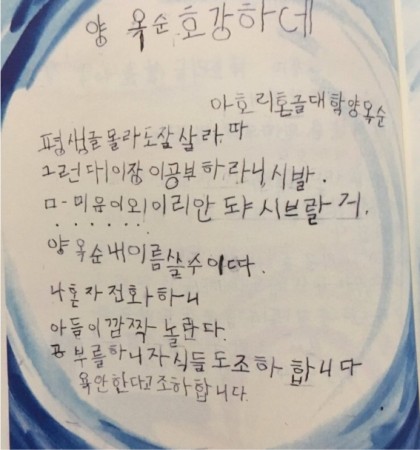 양 옥순 호강하데
아흐리혼글대학양옥순
평생글몰라도잘살라따
그런대이장이공부하라니,시발.
ㅁ-미음이외이리안돠시브랄거.
양옥순내이름쓸수이따.
나혼자전화하니
아들이깜짝놀란다.
공부를하니자식들도조하합니다
욕안한다고조하합니다.